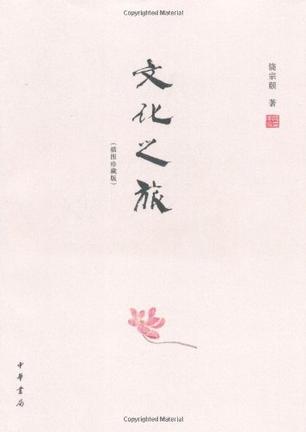 Copyrighted Material
饶宗颐 著
文化之旅
(插图珍藏版)
中华书局
Copyrighted Material